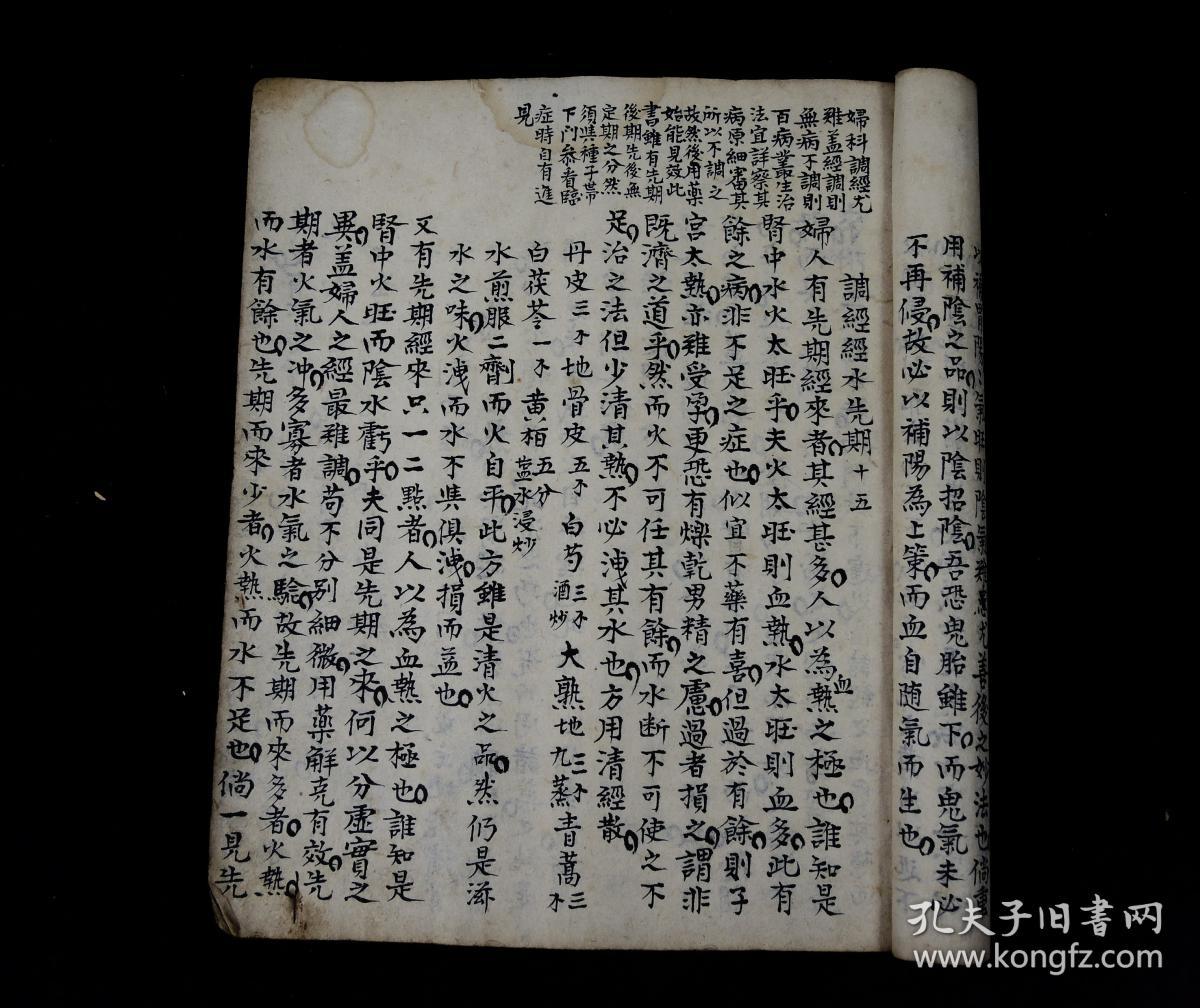 氣旺則陰氣難憑尤善後之妙法也倘重
用補陰之品則以陰招陰吾恐鬼胎雖下而鬼氣未必
不再侵故必以補陽為上策而血自随氣而生也
婦科調經尤
難盖經調則
無病不調則
百病叢生治
法宜詳察其
病原細審其
所以不調之
故然後用藥
始能見效此
書雖有先期
後期先後無
定期之分然
須與種子帶
下門叅看臨
症時自有進
見
調經經水先期十五
婦人有先期經來者其經甚多人以為血熱之極也誰知是
腎中水火太旺乎夫火太旺則血熱水太旺則血多此有
餘之病非不足之症也似宜不藥有喜但過於有餘則子
宮太熱亦難受孕更恐有爍乾男精之慮過者損之謂非
既濟之道乎然而火不可任其有餘而水断不可使之不
足治之法但少清其熱不必洩其水也方用清經散
丹皮三不地骨皮五不白芍三不酒炒大熟地三不九蒸青蒿三不
白茯苓一不黄栢五分盐水浸炒
水煎服二劑而火自平此方雖是清火之品然仍是滋
水之味火洩而水不與俱洩損而益也
又有先期經來只一二點者人以為血熱之極也誰知是
腎中火旺而陰水虧乎夫同是先期之來何以分虛實之
異盖婦人之經最難調苟不分别細微用藥鮮克有效先
期者火氣之冲多寡者水氣之驗故先期而來多者火熱
而水有餘也先期而來少者火熱而水不足也倘一見先
孔夫子旧书网
www.kongfz.com